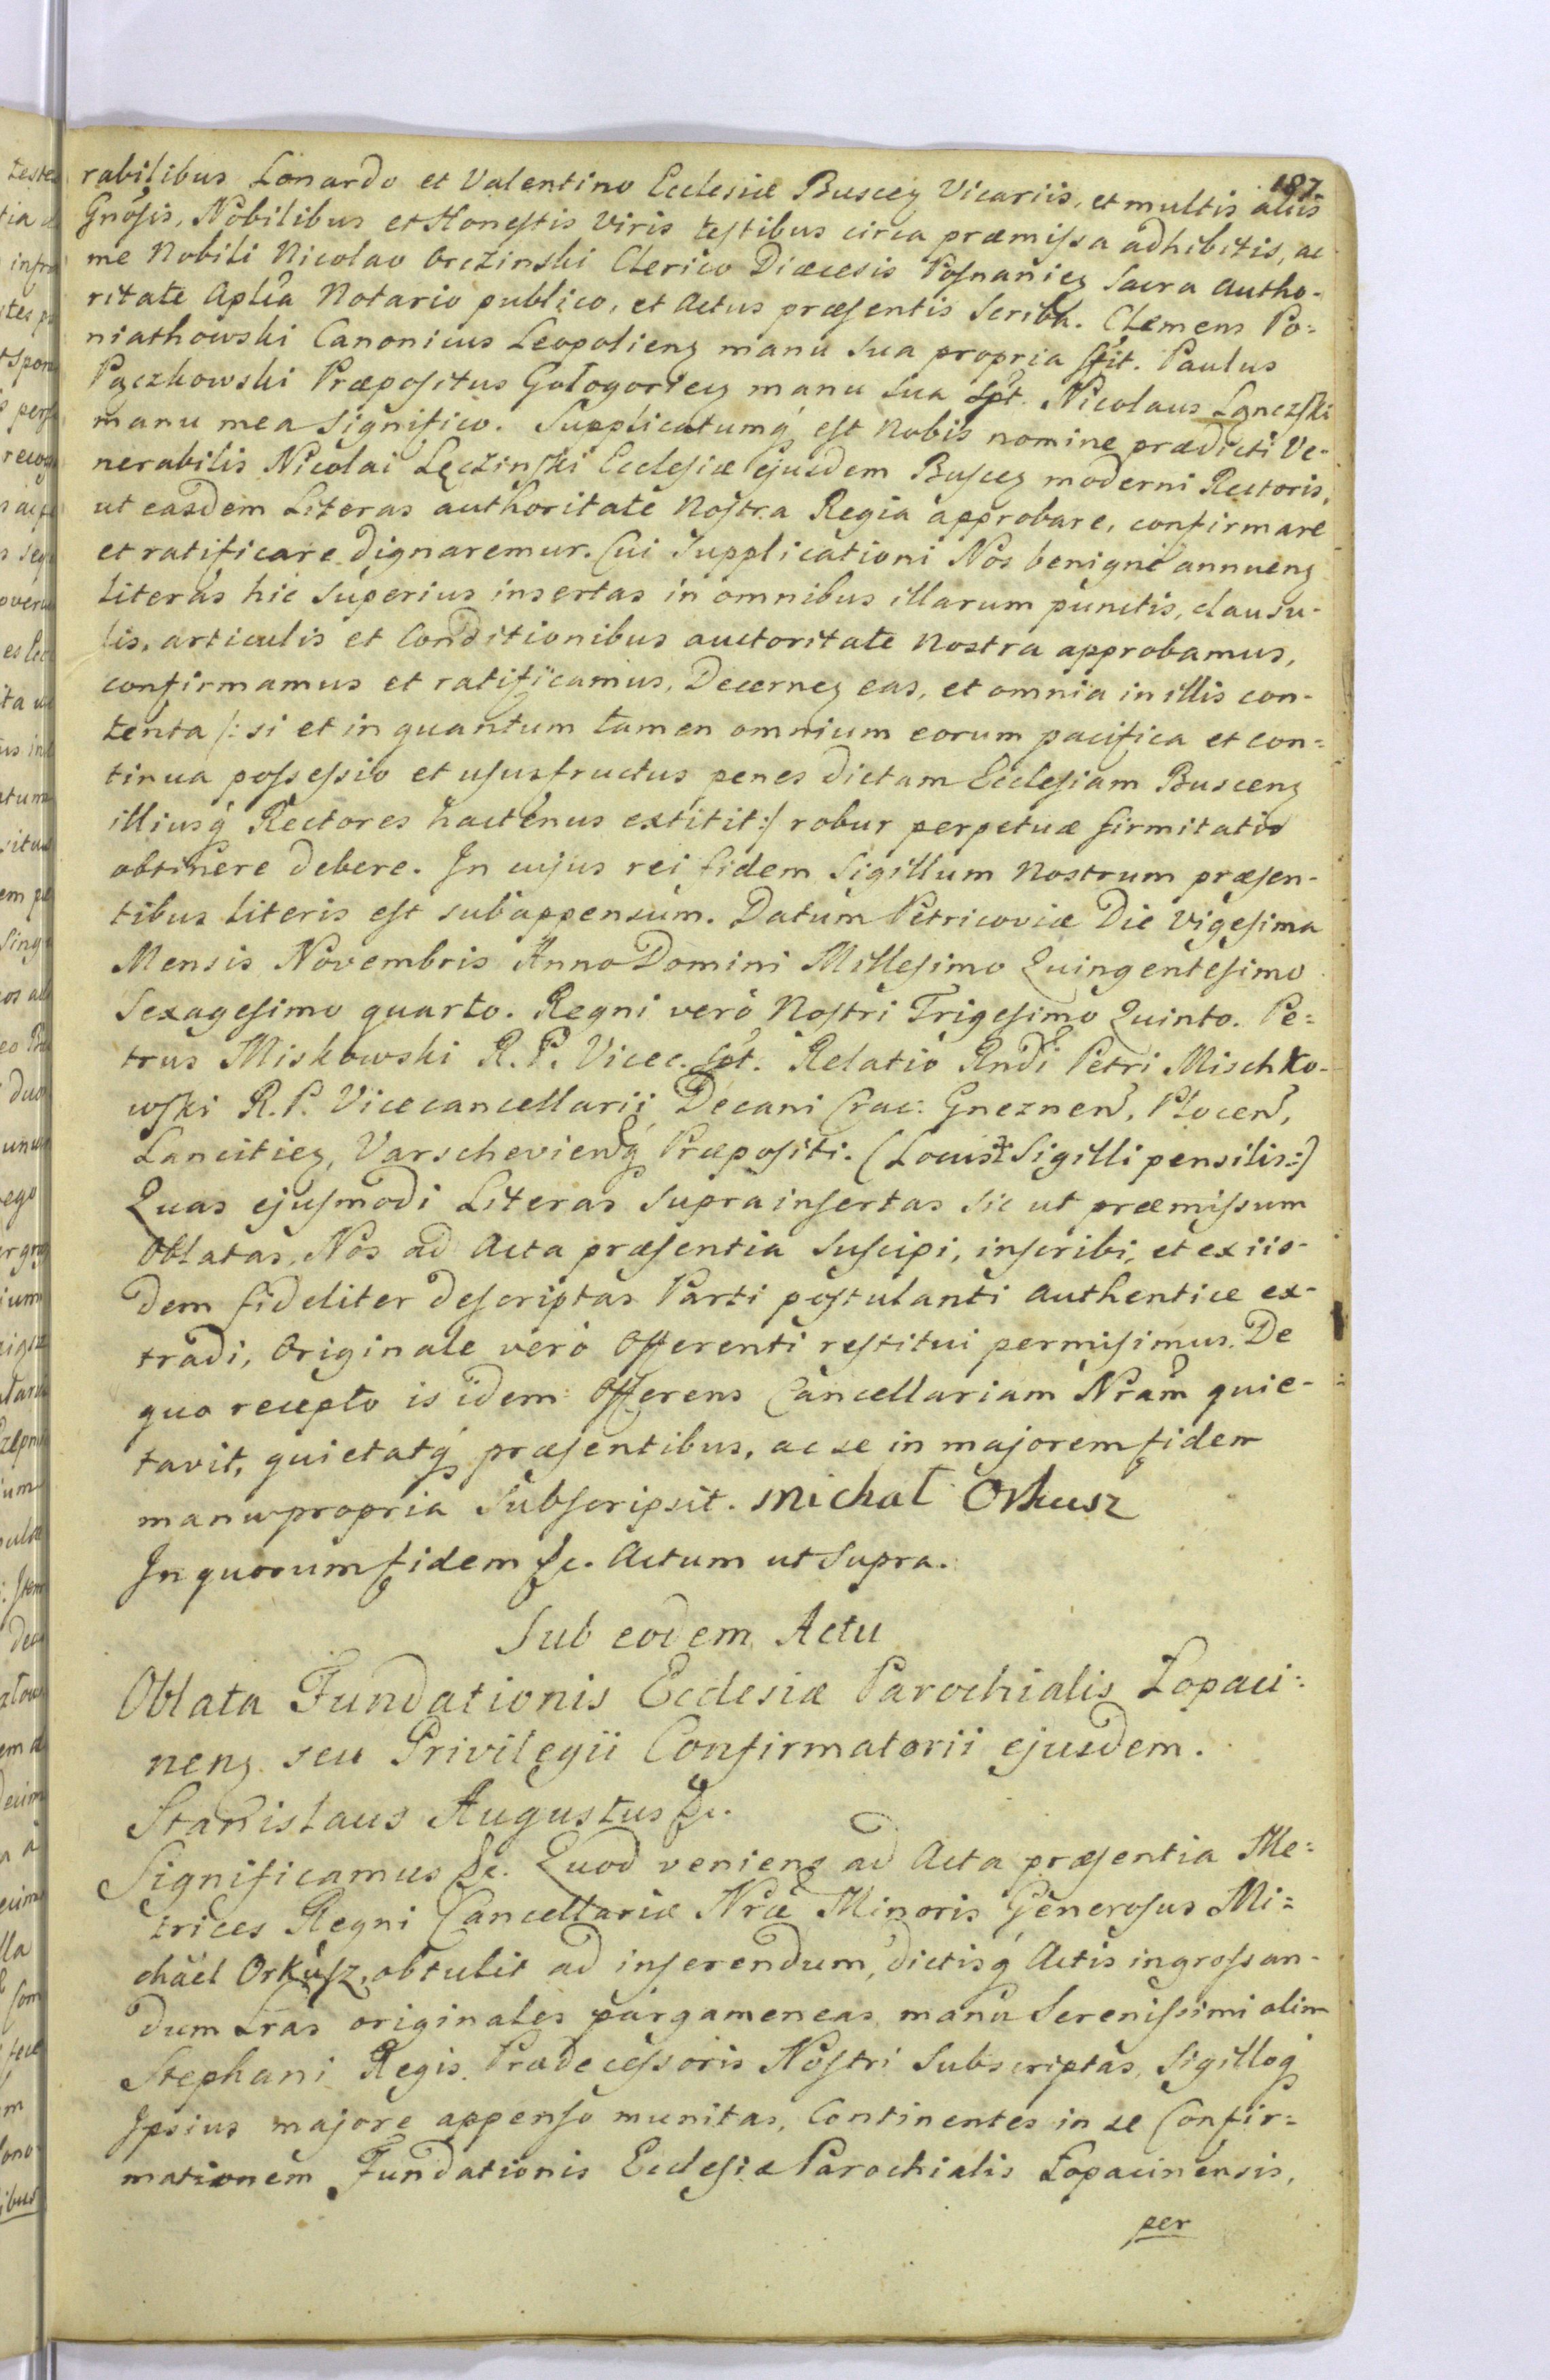 187.
rabilibus Lonardo et Valentino Ecclesiæ Buscen̄ Vicariis, et multis aliis
Gnosis, Nobilibus et Honestis Viris testibus circa præmissa adhibitis, ac
me Nobili Nicolao Orczinski Clerico Diæcesis Posnanien̄ Sacra Autho-
ritate Aplĉa Notario publico, et Actus præsentis Scriba. Clemens Po=
niathowski Canonicus Leopolien̄ manu sua propria sst. Paulus
Pączkowski Præpositus Gołogorien̄ manu sua sst. Nicolaus Lanczski
manu mea significo. Supplicatumq́ est Nobis nomine prædicti Ve-
nerabilis Nicolai Lęczinski Ecclesiæ ejusdem Buscen̄ moderni Rectoris,
ut easdem Literas authoritate Nostra Regia approbare, confirmare
et ratificare dignaremur. Cui Supplicationi Nos benigne annuen̄
Literas hic superius insertas in omnibus illarum punctis, clausu-
lis, articulis et Conditionibus auctoritate nostra approbamus,
confirmamus et ratificamus, Decernen̄ eas, et omnia in illis con-
tenta /: si et in quantum tamen omnium eorum pacifica et con=
tinua possessio et ususfructus penes dictam Ecclesiam Buscen̄
illiusq́ Rectores hactenus extitit:/ robur perpetuæ firmitatis
obtinere debere. In cujus rei fidem Sigillum Nostrum præsen-
tibus literis est subappensum. Datum Petricoviæ Die vigesima
Mensis Novembris Anno Domini Millesimo Quingentesimo
Sexagesimo quarto. Regni verò Nostri Trigesimo Quinto. Pe=
trus Miskowski R. P. Vicec. sst. Relatio Rndi Petri Mischko-
wski R. P. Vicecancellarii Decani Crac: Gneznen̄, Plocen̄,
Lancitien̄, Varschevien̄q́ Præpositi. (Locus Sigilli pensilis:)
Quas ejusmodi Literas supra insertas sic ut præmissum
Oblatas, Nos ad Acta præsentia suscipi, inscribi, et ex iis-
dem fideliter descriptas Parti postulanti authentice ex-
tradi, Originale verò Offerenti restitui permisimus. De
quo recepto is idem Offerens Cancellariam Nram quie-
tavit, quietatq́ præsentibus, ac se in majorem fidem
manu propria subscripsit. Michał Orkusz
In quorum fidem &c. Actum ut supra.
Sub eodem Actu
Oblata Fundationis Ecclesiæ Parochialis Łopaci:
nen̄ seu Privilegii Confirmatorii ejusdem.
Stanislaus Augustus &c.
Significamus &c. Quod veniens ad Acta præsentia Me:
trices Regni Cancellariæ Nræ Minoris Generosus Mi=
chäel Orkusz, obtulit ad inserendum, dictisq́ Actis ingrossan-
dum Lras originales pargameneas, manu Serenissimi olim
Stephani Regis Prædecessoris Nostri Subscriptas, Sigilloq́
Ipsius majore appenso munitas, Continentes in se Confir=
mationem Fundationis Ecclesiæ Parochialis Łopacinensis,
per